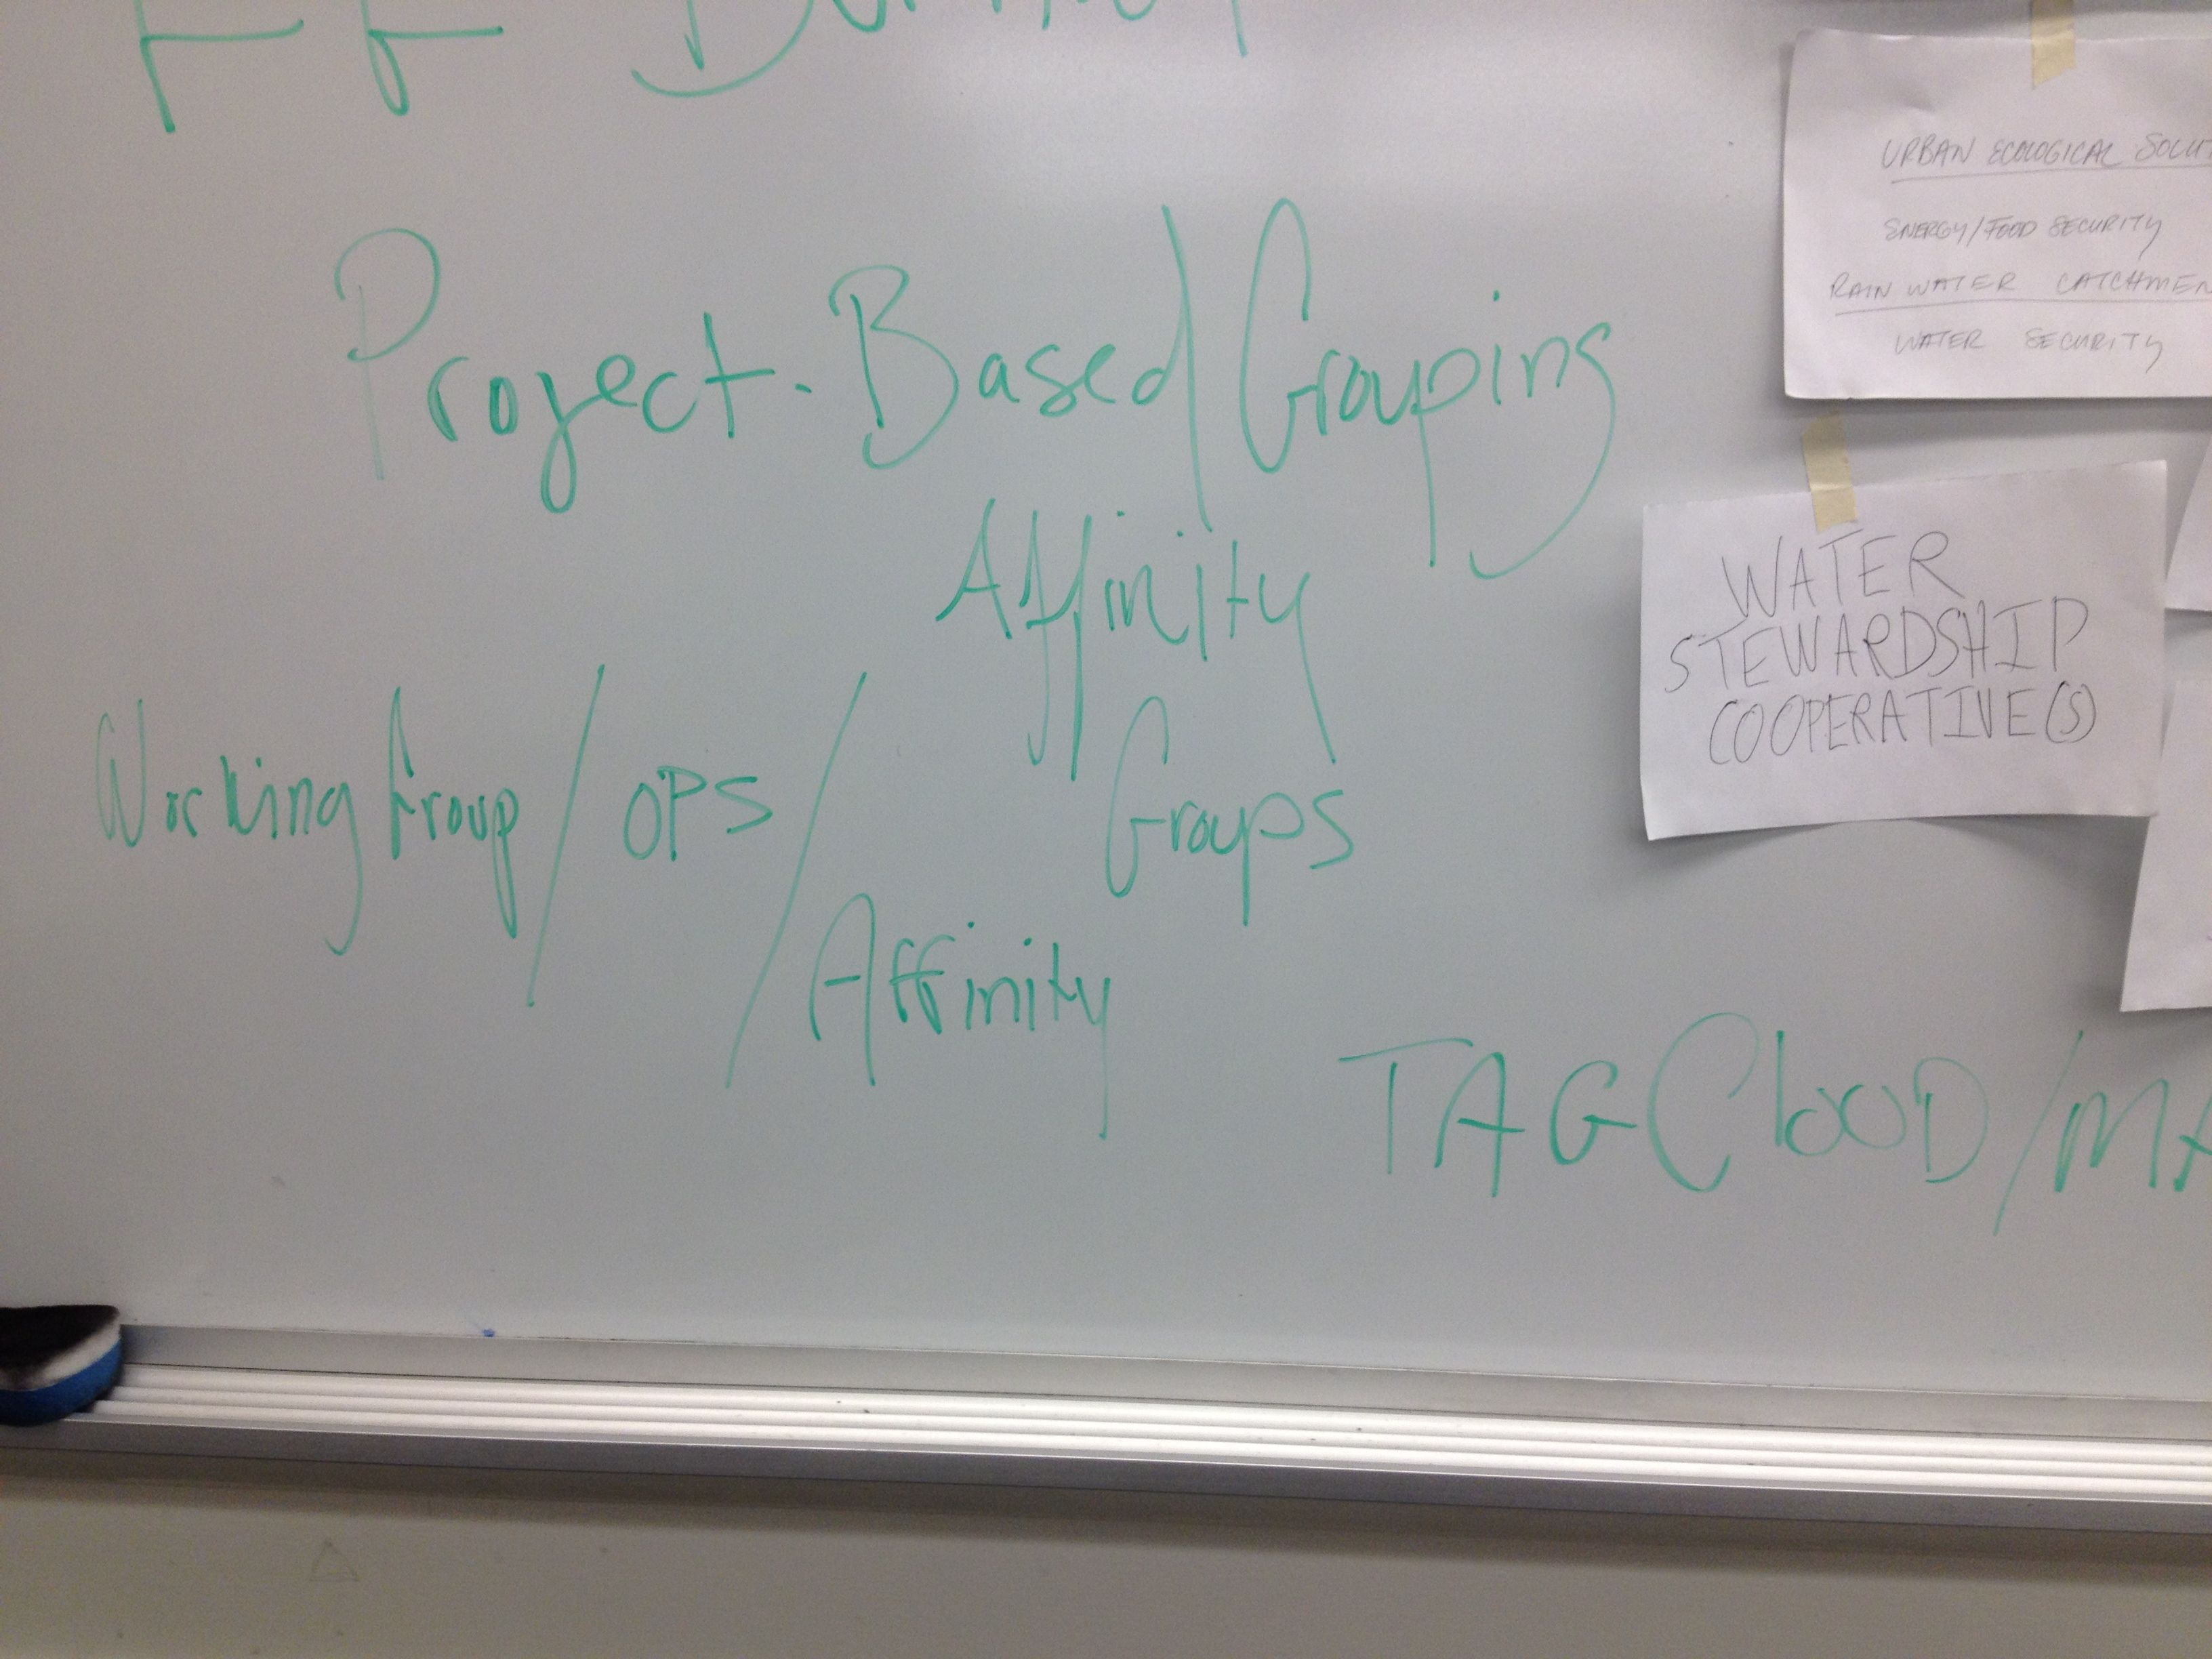 Project-Based Grouping
Affinity
Groups
Working Group / OPS /
Affinity
TAG CloUD / MA
URBAN ECOLOGICAL SOLUT
ENERGY/FOOD SECURITY
RAIN WATER CATCHMEN
WATER SECURITY
WATER
STEWARDSHIP
COOPERATIVE(S)